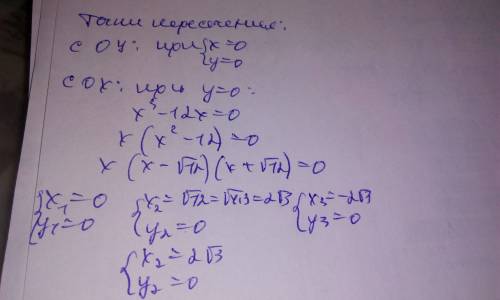 Точки пересечения:
с OY: при {x=0 y=0
с OX: при y=0:
x³-12x=0
x(x²-12)=0
x(x-√12)(x+√12)=0
{x₁=0 y₁=0 {x₂=√12=√4·3=2√3 y₂=0 {x₃=-2√3 y₃=0
{x₂=2√3 y₂=0